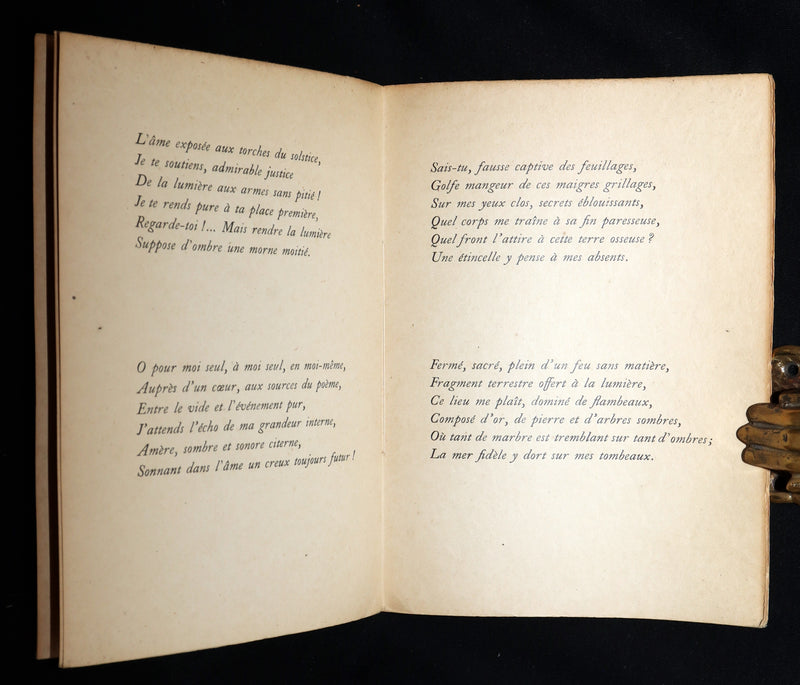 L'âme exposée aux torches du solstice,
Je te soutiens, admirable justice
De la lumière aux armes sans pitié !
Je te rends pure à ta place première,
Regarde-toi !... Mais rendre la lumière
Suppose d'ombre une morne moitié.
O pour moi seul, à moi seul, en moi-même,
Auprès d'un cœur, aux sources du poème,
Entre le vide et l'événement pur,
J'attends l'écho de ma grandeur interne,
Amère, sombre et sonore citerne,
Sonnant dans l'âme un creux toujours futur !
Sais-tu, fausse captive des feuillages,
Golfe mangeur de ces maigres grillages,
Sur mes yeux clos, secrets éblouissants,
Quel corps me traîne à sa fin paresseuse,
Quel front l'attire à cette terre osseuse ?
Une étincelle y pense à mes absents.
Fermé, sacré, plein d'un feu sans matière,
Fragment terrestre offert à la lumière,
Ce lieu me plaît, dominé de flambeaux,
Composé d'or, de pierre et d'arbres sombres,
Où tant de marbre est tremblant sur tant d'ombres ;
La mer fidèle y dort sur mes tombeaux.